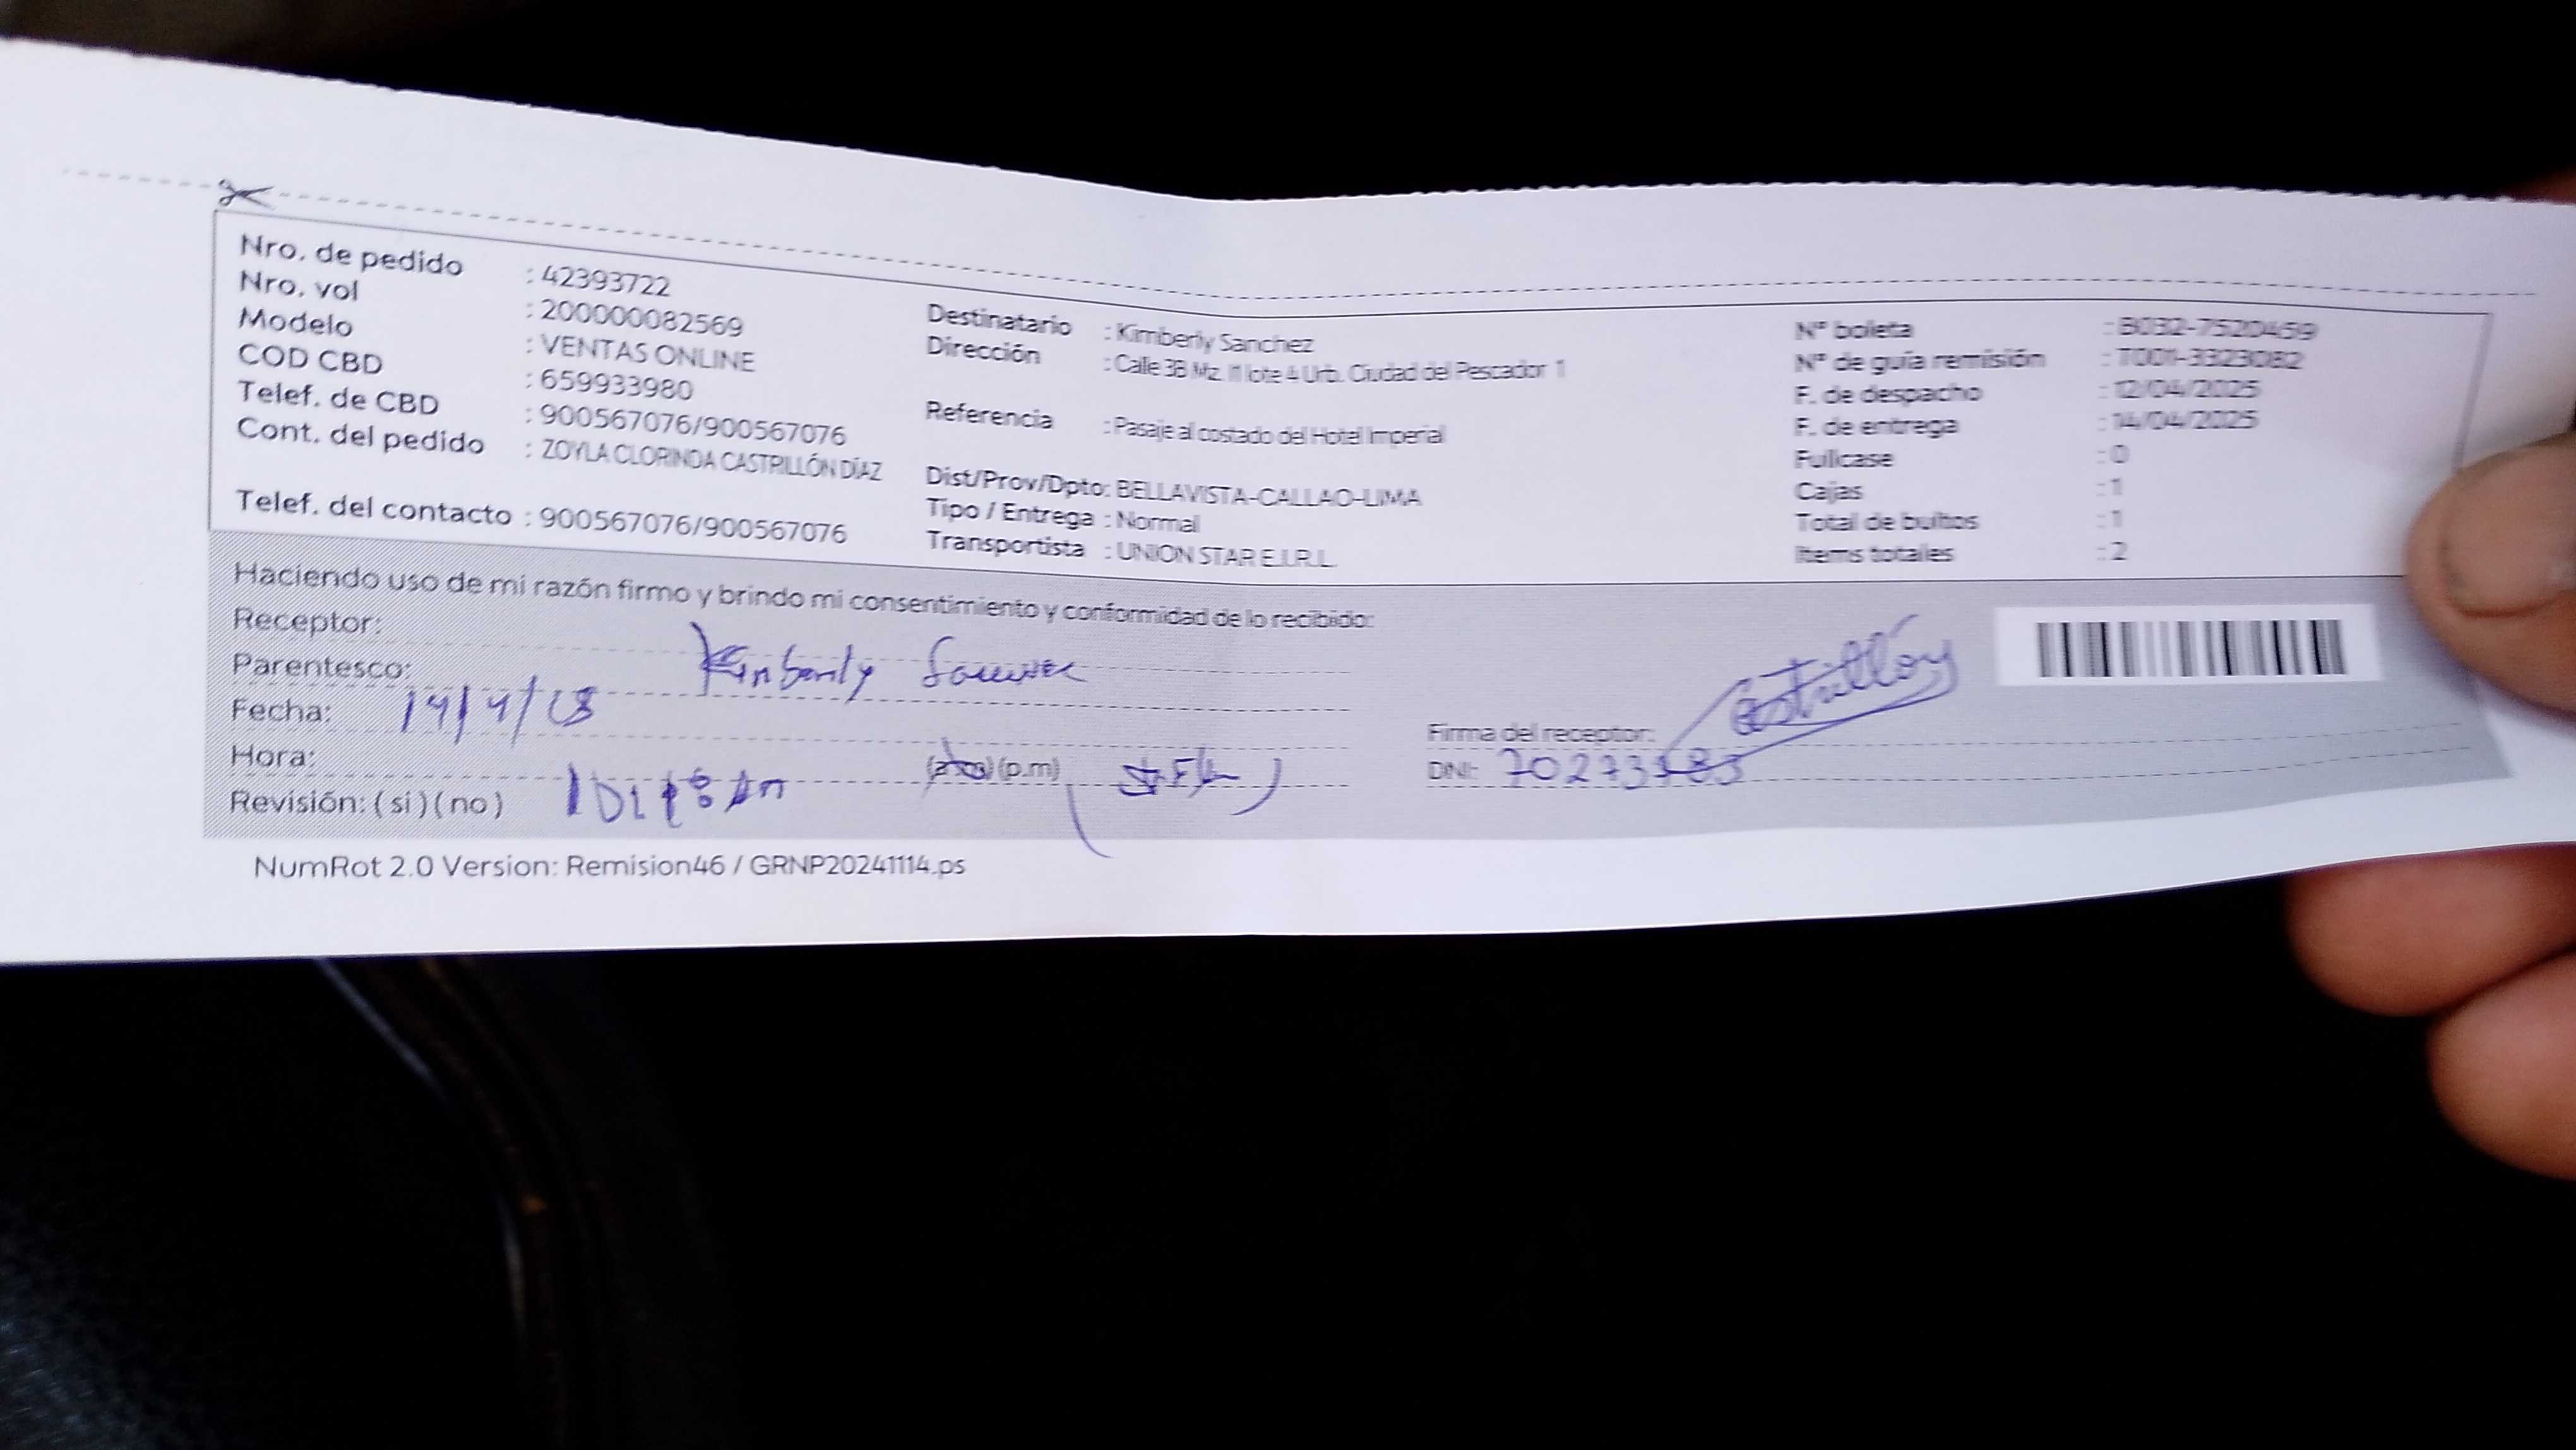 Nro. de pedido : 42393722
Nro. vol : 200000082569
Modelo : VENTAS ONLINE
COD CBD : 659933980
Telef. de CBD : 900567076/900567076
Cont. del pedido : ZOYLA CLORINDA CASTRILLÓN DÍAZ
Telef. del contacto : 900567076/900567076
Destinatario : Kimberly Sanchez
Dirección : Calle 3B Mz. I1 lote 4 Urb. Ciudad del Pescador 1
Referencia : Pasaje al costado del Hotel Imperial
Dist/Prov/Dpto: BELLAVISTA-CALLAO-LIMA
Tipo / Entrega : Normal
Transportista : UNION STAR E.I.R.L.
N° boleta : B032-7520459
N° de guía remisión : T001-3323082
F. de despacho : 12/04/2025
F. de entrega : 14/04/2025
Fullcase : 0
Cajas : 1
Total de bultos : 1
Items totales : 2
Haciendo uso de mi razón firmo y brindo mi consentimiento y conformidad de lo recibido:
Receptor:
Parentesco: Kimberly
Fecha: 14/4/
Hora: (p.m)
Revisión: (si) (no)
Castrillón
Firma del receptor:
DNI:
NumRot 2.0 Version: Remision46 / GRNP20241114.ps